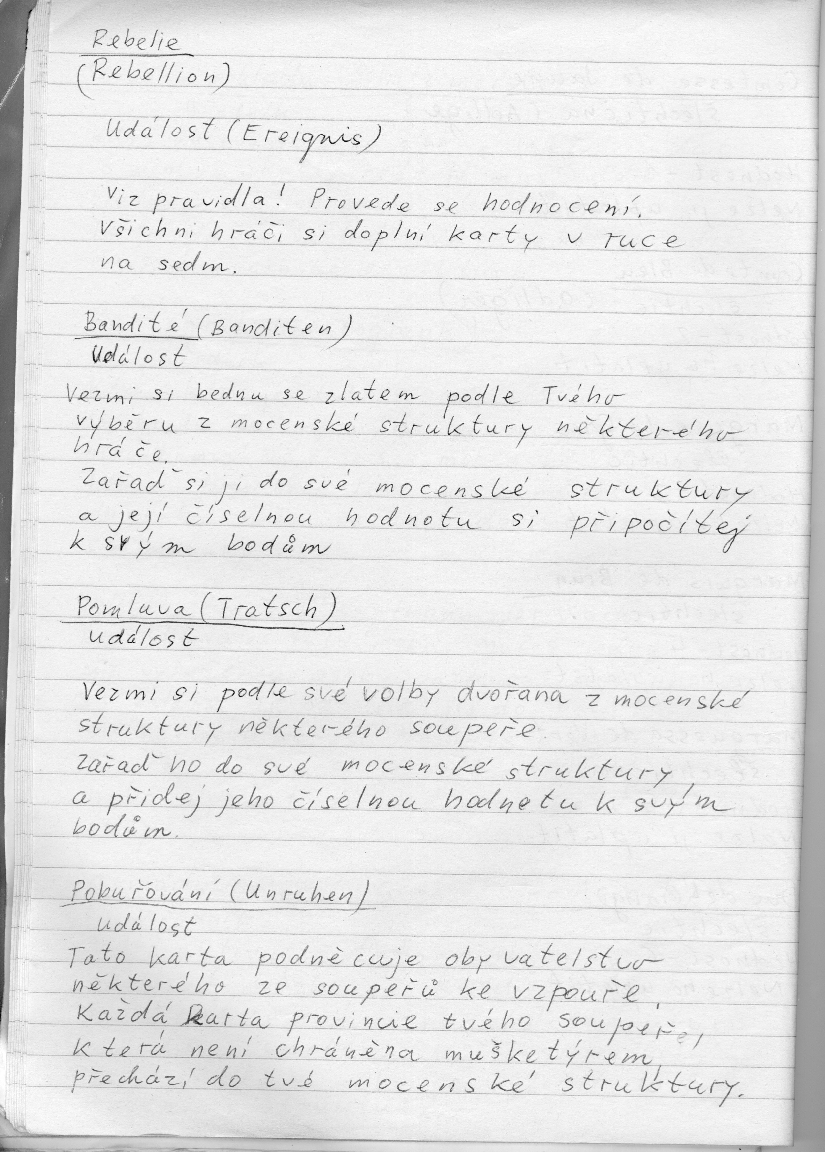 Rebelie
(Rebellion)
Událost (Ereignis)
Viz pravidla! Provede se hodnocení.
Všichni hráči si doplní karty v ruce
na sedm.
Bandité (Banditen)
Událost
Vezmi si bednu se zlatem podle Tvého
výběru z mocenské struktury některého
hráče.
Zařaď si ji do své mocenské struktury
a její číselnou hodnotu si připočítej
k svým bodům
Pomluva (Tratsch)
událost
Vezmi si podle své volby dvořana z mocenské
struktury některého soupeře
Zařaď ho do své mocenské struktury,
a přidej jeho číselnou hodnotu k svým
bodům.
Pobuřování (Unruhen)
událost
Tato karta podněcuje obyvatelstvo
některého ze soupeřů ke vzpouře.
Každá karta provincie tvého soupeře,
která není chráněna mušketýrem,
přechází do tvé mocenské struktury.